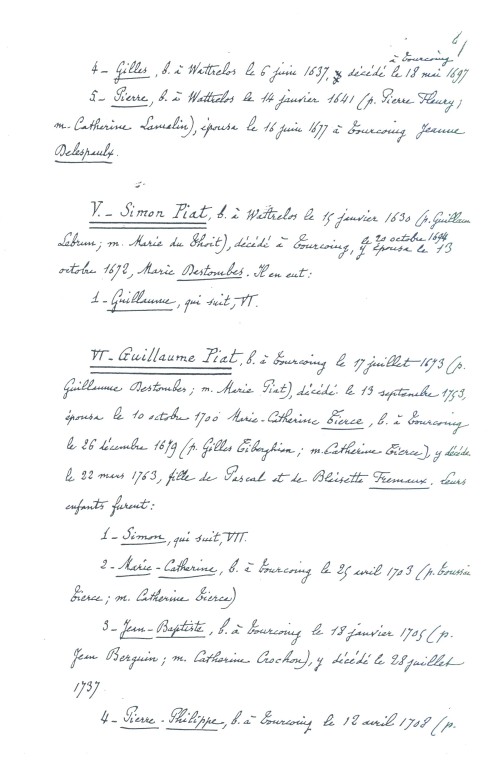 6
à Tourcoing
4 - Gilles, b. à Wattrelos le 6 juin 1637, décédé le 18 mai 1697
5 - Pierre, b. à Wattrelos le 14 janvier 1641 (p. Pierre Fleury;
m. Catherine Lamelin), épousa le 16 juin 1677 à Tourcoing Jeanne
Delespaulx.
V. - Simon Piat, b. à Wattrelos le 15 janvier 1630 (p. Guillaum
Lebrun; m. Marie du Thoit), décédé à Tourcoing, le 20 octobre 1694 y épousa le 13
octobre 1672, Marie Destombes. Il en eut:
1 - Guillaume, qui suit, VI.
VI - Guillaume Piat, b. à Tourcoing le 17 juillet 1673 (p.
Guillaume Destombes; m. Marie Piat), décédé le 13 septembre 1753,
épousa le 10 octobre 1700 Marie-Catherine Tierce, b. à Tourcoing
le 26 décembre 1679 (p. Gilles Tiberghien; m. Catherine Tierce), y décéda
le 22 mars 1763, fille de Pascal et de Bleisette Fremaux. Leurs
enfants furent:
1 - Simon, qui suit, VII.
2 - Marie-Catherine, b. à Tourcoing le 25 avril 1703 (p. Toussain
Tierce; m. Catherine Tierce)
3 - Jean-Baptiste, b. à Tourcoing le 18 janvier 1705 (p.
Jean Berguin; m. Catherine Crochon), y décédé le 28 juillet
1737
4 - Pierre-Philippe, b. à Tourcoing le 12 avril 1708 (p.